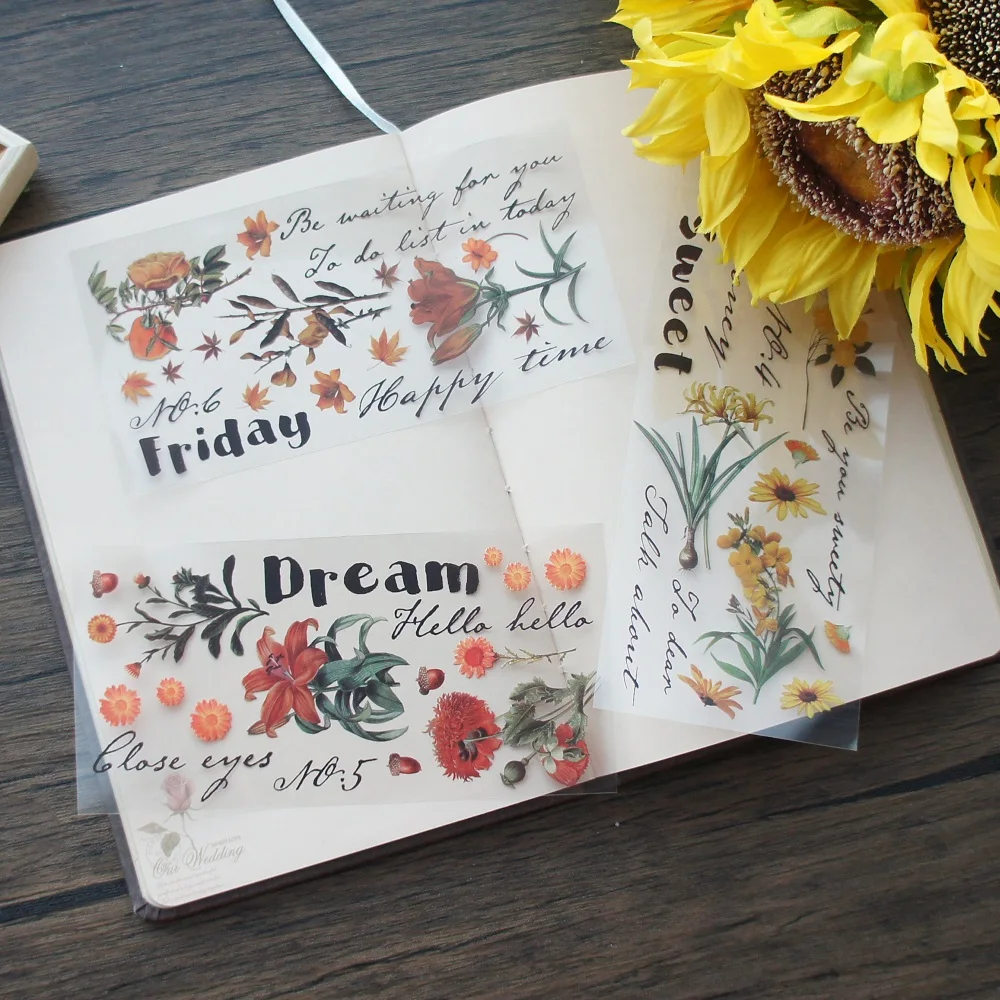 Be waiting for you
To do list in today
Happy time
NO:6
Friday
Dream
Hello hello
Close eyes
NO:5
Sweet
NO:4
Be you sweety
To dear
Talk about
Our Wedding